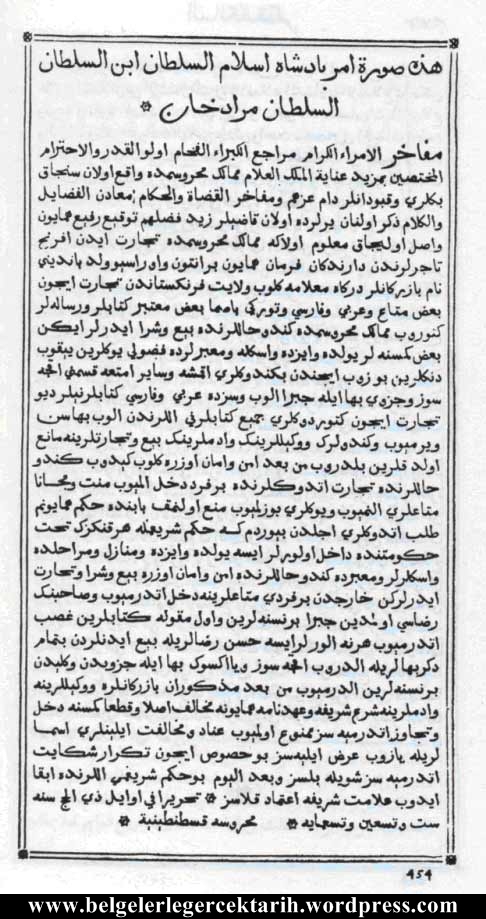 هذه صورة امر پادشاه اسلام السلطان ابن السلطان
السلطان مرادخان *
مفاخر الامراء الكرام مراجع الكبراء الفخام اولو القدر والاحترام
المختصين بمزيد عناية الملك العلام ممالك محروسمده واقع اولان سنجاق
بكلرى وقبودانلر دام عزهم ومفاخر القضاة والحكام معادن الفضايل
والكلام ذكر اولنان يرلرده اولان قاضيلر زيد فضلهم توقيع رفيع همايون
واصل اوليجاق معلوم اولاكه ممالك محروسمده تجارت ايدن افرنج
تاجرلرندن دارندكان فرمان همايون برانتون واوراسيو ولد بانديني
نام بازركانلر دركاه معلامه كلوب ولايت فرنكستاندن تجارت ايچون
بعض متاع وعربي وفارسي وتوركي باصما بعض معتبر كتابلر ورساله لر
كتوروب ممالك محروسمده كندو حاللرنده بيع وشرا ايدرلر ايكن
بعض كسنه لر يولده وايزده واسكله ومعبرلرده فضولي يوكلرين ييقوب
دنكلرين بوزوب ايچندن بكندوكلرى اقشه وساير امتعه قسمني اقچه
سوز وجزوي بها ايله جبرا الوب وسزده عربي وفارسي كتابلر نيلر ديو
تجارت ايچون كتوردوكلرى جميع كتابلرني اللرندن الوب بهاسن
ويرميوب وكندولرك ووكيللرينك وادملرينك بيع وتجارتلرينه مانع
اولدقلرين بلدروب من بعد امن وامان اوزره كلوب كيدوب كندو
حاللرنده تجارت اتدوكلرنده برفرد دخل الميوب منت ومجانا
متاعلرى النميوب ويوكلرى بوزلميوب منع اولنمق بابنده حكم همايونم
طلب اتدوكلرى اجلدن بيوردم كه حكم شريفمله هر قنكزك تحت
حكومتنده داخل اولورلر ايسه يولده وايزده ومنازل ومراحلده
واسكلرلر ومعبرده كندو حاللرنده امن وامان اوزره بيع وشرا وتجارت
ايدرلركن خارجدن برفردي متاعلرينه دخل اتدرميوب وصاحبنك
رضاسى اولمدين جبرا برنسنه لرين واول مقوله كتابلرين غصب
اتدرميوب هر نه الورلر ايسه حسن رضالريله بيع ايدنلردن بتمام
دكر بهالريله الدروب اقچه سوز ويا اكسوك بها ايله جزويدن وكليدن
برنسنه لرين الدرميوب من بعد مذكوران بازركانلره ووكيللرينه
وادملرينه شرع شريفه وعهدنامه همايونه مخالف اصلا وقطعا كسنه دخل
وتجاوز اتدرميه سز ممنوع اولميوب عناد ومخالفت ايلينلري اسما
لريله يازوب عرض ايليه سز بو خصوص ايچون تكرار شكايت
اتدرميه سز شويله بلسز وبعد اليوم بو حكم شريفمي اللرنده ابقا
ايدوب علامت شريفه اعتماد قلاسز * تحريرا في اوايل ذي الحج سنه
ست وتسعين وتسعمايه * محروسه قسطنطينية *
٤٥٤
www.belgelerlegercektarih.wordpress.com